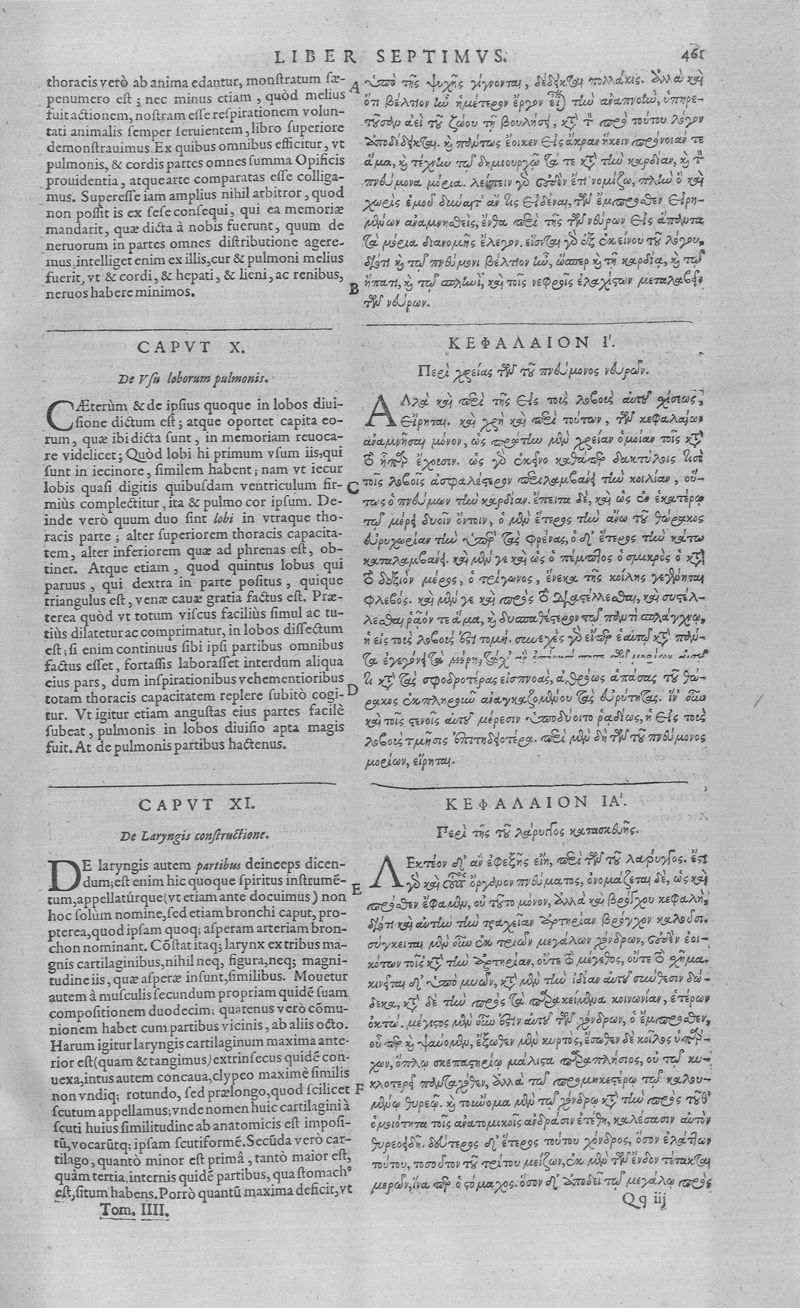 LIBER SEPTIMVS. 461
thoracis verò ab anima edantur, monstratum sæ-
penumero est; nec minus etiam, quòd melius
fuit actionem, nostram esse respirationem volun-
tati animalis semper seruientem, libro superiore
demonstrauimus. Ex quibus omnibus efficitur, vt
pulmonis, & cordis partes omnes summa Opificis
prouidentia, atque arte comparatas esse colliga-
mus. Superesse iam amplius nihil arbitror, quod
non possit is ex sese consequi, qui ea memoriæ
mandarit, quæ dicta à nobis fuerunt, quum de
neruorum in partes omnes distributione agere-
mus. intelliget enim ex illis, cur & pulmoni melius
fuerit, vt & cordi, & hepati, & lieni, ac renibus,
neruos habere minimos.
CAPVT X.
De Vsu loborum pulmonis.
CÆterùm & de ipsius quoque in lobos diui-
sione dictum est; atque oportet capita eo-
rum, quæ ibi dicta sunt, in memoriam reuoca-
re videlicet; Quòd lobi hi primum vsum iis, qui
sunt in iecinore, similem habent; nam vt iecur
lobis quasi digitis quibusdam ventriculum fir-
miùs complectitur, ita & pulmo cor ipsum. De-
inde verò quum duo sint lobi in vtraque tho-
racis parte; alter superiorem thoracis capacita-
tem, alter inferiorem quæ ad phrenas est, ob-
tinet. Atque etiam, quod quintus lobus qui
paruus, qui dextra in parte positus, quique
triangulus est, venæ cauæ gratia factus est. Præ-
terea quòd vt totum viscus faciliùs simul ac tu-
tiùs dilatetur ac comprimatur, in lobos dissectum
est; si enim continuus sibi ipsi partibus omnibus
factus esset, fortassis laborasset interdum aliqua
eius pars, dum inspirationibus vehementioribus
totam thoracis capacitatem replere subitò cogi-
tur. Vt igitur etiam angustas eius partes facilè
subeat, pulmonis in lobos diuisio apta magis
fuit. At de pulmonis partibus hactenus.
CAPVT XI.
De Laryngis constructione.
DE laryngis autem partibus deinceps dicen-
dum; est enim hic quoque spiritus instrumē-
tum, appellatúrque (vt etiam ante docuimus) non
hoc solùm nomine, sed etiam bronchi caput, pro-
pterea, quod ipsam quoq; asperam arteriam bron-
chon nominant. Cōstat itaq; larynx ex tribus ma-
gnis cartilaginibus, nihil neq; figura, neq; magni-
tudine iis, quæ asperæ insunt, similibus. Mouetur
autem à musculis secundum propriam quidē suam
compositionem duodecim; quatenus verò cōmu-
nionem habet cum partibus vicinis, ab aliis octo.
Harum igitur laryngis cartilaginum maxima ante-
rior est (quam & tangimus) extrinsecus quidē con-
uexa, intus autem concaua, clypeo maximē similis
non vndiq; rotundo, sed prælongo, quod scilicet
scutum appellamus; vnde nomen huic cartilagini à
scuti huius similitudine ab anatomicis est imposi-
tū, vocarūtq; ipsam scutiformē. Secūda verò car-
tilago, quantò minor est primâ, tantò maior est,
quàm tertia. internis quidē partibus, qua stomachº
est, situm habens. Porrò quantū maxima deficit, vt
Tom. IIII.
A
B
C
D
E
F
ὑπὸ τῆς ψυχῆς γίγνονται, δέδεικται πολλάκις. ἀλλὰ καὶ
ὅτι βέλτιον ἦν ἡμέτερον ἔργον εἶναι τὴν ἀναπνοὴν, ὑπηρε-
τοῦσαν ἀεὶ τοῦ ζώου τῇ βουλήσει, κατὰ τὸν πρὸ τούτου λόγον
ἀποδέδεικται. καὶ πάντως ἔοικεν εἰς ἄκραν ἥκειν πρόνοιάν τε
ἅμα, καὶ τέχνην τοῦ δημιουργοῦ τά τε κατὰ τὴν καρδίαν, καὶ τὸν
πνεύμονα μόρια. λείπειν γὰρ οὐδὲν ἔτι νομίζω, πλὴν ὃ καὶ
χωρὶς ἐμοῦ δύναιτ' ἄν τις εἰδέναι, τῶν ἔμπροσθεν εἰρη-
μένων ἀναμνησθεὶς, ἔνθα περὶ τῆς τῶν νεύρων εἰς ἅπαντα
τὰ μόρια διανομῆς ἔλεγον. εἴσεται γὰρ ἐξ ἐκείνου τοῦ λόγου,
διότι καὶ τῷ πνεύμονι βέλτιον ἦν, ὥσπερ καὶ τῇ καρδίᾳ, καὶ τῷ
ἥπατι, καὶ τῷ σπληνὶ, καὶ τοῖς νεφροῖς ἐλαχίστων μεταλαβεῖν
τῶν νεύρων.
ΚΕΦΑΛΑΙΟΝ Ι΄.
Περὶ χρείας τῶν τοῦ πνεύμονος νεύρων.
ΑΛλὰ καὶ περὶ τῆς εἰς τοὺς λοβοὺς αὐτοῦ σχίσεως,
εἴρηται. καὶ χρὴ καὶ περὶ τούτων, τῶν κεφαλαίων
ἀναμνῆσαι μόνον, ὡς πρώτην μὲν χρείαν ὁμοίαν τοῖς κατὰ
τὸ ἧπαρ ἔχουσιν. ὡς γὰρ ἐκεῖνο καθάπερ δακτύλοις τισὶ
τοῖς λοβοῖς ἀσφαλέστερον περιλαμβάνει τὴν κοιλίαν, οὕ-
τως ὁ πνεύμων τὴν καρδίαν. ἔπειτα δὲ, καὶ ὡς ἐν ἑκατέρῳ
τῷ μέρει δυοῖν ὄντοιν, ὁ μὲν ἕτερος τὴν ἄνω τοῦ θώρακος
εὐρυχωρίαν τὴν ὑπὲρ τὰς φρένας, ὁ δ' ἕτερος τὴν κάτω
καταλαμβάνει. καὶ μέν γε καὶ ὡς ὁ πέμπτος ὁ σμικρὸς ὁ κατὰ
τὸ δεξιὸν μέρος, ὁ τρίγωνος, ἕνεκα τῆς κοίλης γεγένηται
φλεβός. καὶ μέν γε πρὸς τὸ διαστέλλεσθαι, καὶ συστέλ-
λεσθαι ῥᾷόν τε ἅμα, καὶ δυσπαθέστερον τῷ παντὶ σπλάγχνῳ,
ἡ εἰς τοὺς λοβούς ἐστι τομή. συνεχὲς γὰρ ἓν αὐτὸ ἑαυτῷ κατὰ πᾶν-
τα
τι κατὰ τὰς σφοδροτέρας εἰσπνοὰς, ἀθρόως ἁπάσας τοῦ θώ-
ρακος ἐκπληροῦν ἀναγκαζόμενον τὰς εὐρύτητας. ἵν' οὖν
καὶ τοῖς στενοῖς αὐτοῦ μέρεσιν ὑποδύοιτο ῥᾳδίως, ἡ εἰς τοὺς
λοβοὺς τμῆσις ἐπιτηδειοτέρα. περὶ μὲν δὴ τῶν τοῦ πνεύμονος
μορίων, εἴρηται.
ΚΕΦΑΛΑΙΟΝ ΙΑ΄.
Περὶ τῆς τοῦ λάρυγγος κατασκευῆς.
ΛΕκτέον δ' ἂν ἐφεξῆς εἴη, περὶ τῶν τοῦ λάρυγγος. ἔστι
γὰρ καὶ τοῦτο ὄργανον πνεύματος, ὀνομάζεται δὲ, ὡς καὶ
πρόσθεν ἔφαμεν, οὐ τοῦτο μόνον, ἀλλὰ καὶ βρόγχου κεφαλὴ,
διότι καὶ αὐτὴν τὴν τραχεῖαν ἀρτηρίαν βρόγχον καλοῦσι.
σύγκειται μὲν οὖν ἐκ τριῶν μεγάλων χόνδρων, οὐδὲν ἐοι-
κότων τοῖς κατὰ τὴν ἀρτηρίαν, οὔτε τὸ μέγεθος, οὔτε τὸ σχῆμα.
κινεῖται δ' ὑπὸ μυῶν, κατὰ μὲν τὴν ἰδίαν αὐτοῦ σύνθεσιν δώ-
δεκα, κατὰ δὲ τὴν πρὸς τὰ παρακείμενα κοινωνίαν, ἑτέρων
ὀκτώ. μέγιστος μὲν οὖν ἐστιν αὐτοῦ τῶν χόνδρων, ὁ ἔμπροσθεν,
οὗ καὶ ψαύομεν, ἔξωθεν μὲν κυρτὸς, ἔσωθεν δὲ κοῖλος ὑπάρ-
χων, ὅπλῳ σκεπαστηρίῳ μάλιστα παραπλήσιος, οὐ τῷ κυ-
κλοτερεῖ πανταχόθεν, ἀλλὰ τῷ προμηκεστέρῳ τῷ καλου-
μένῳ θυρεῷ. καὶ τοὔνομα μὲν τῷ χόνδρῳ κατὰ τῆς πρὸς τοῦθ'
ὁμοιότητα τοῖς ἀνατομικοῖς ἀνδράσιν ἐτέθη, καλέσασιν αὐτὸν
θυρεοειδῆ. δεύτερος δ' ἕτερος τούτου χόνδρος, ὅσον ἐλάττων
τούτου, τοσοῦτον τοῦ τρίτου μείζων, ἐκ μὲν τῶν ἔνδον τέτακται
μερῶν, ἵνα περ ὁ στόμαχος. ὅσον δ' ἀποδεῖ τῷ μεγάλῳ πρὸς
Qq iij